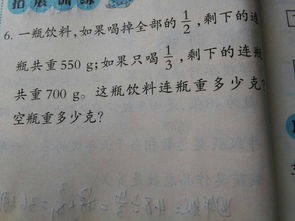 拓展训练
6. 一瓶饮料,如果喝掉全部的1/2,剩下的连
瓶共重550 g;如果只喝1/3,剩下的连
共重700 g。这瓶饮料连瓶重多少克?
空瓶重多少克?